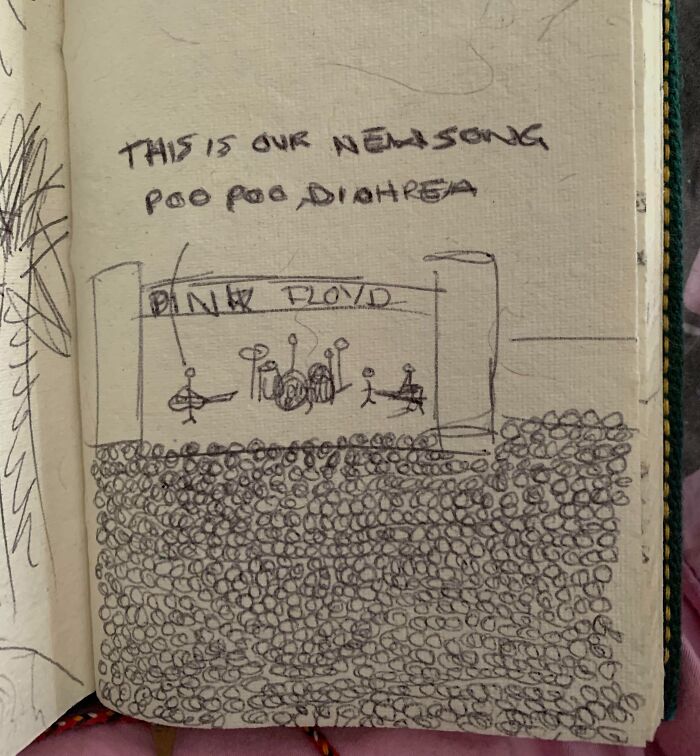 THIS IS OUR NEW SONG
POO POO, DIOHREA
PINK FLOYD